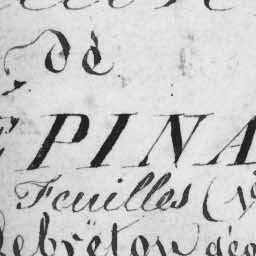 de
PINA
Feuilles (
Lebreton géo